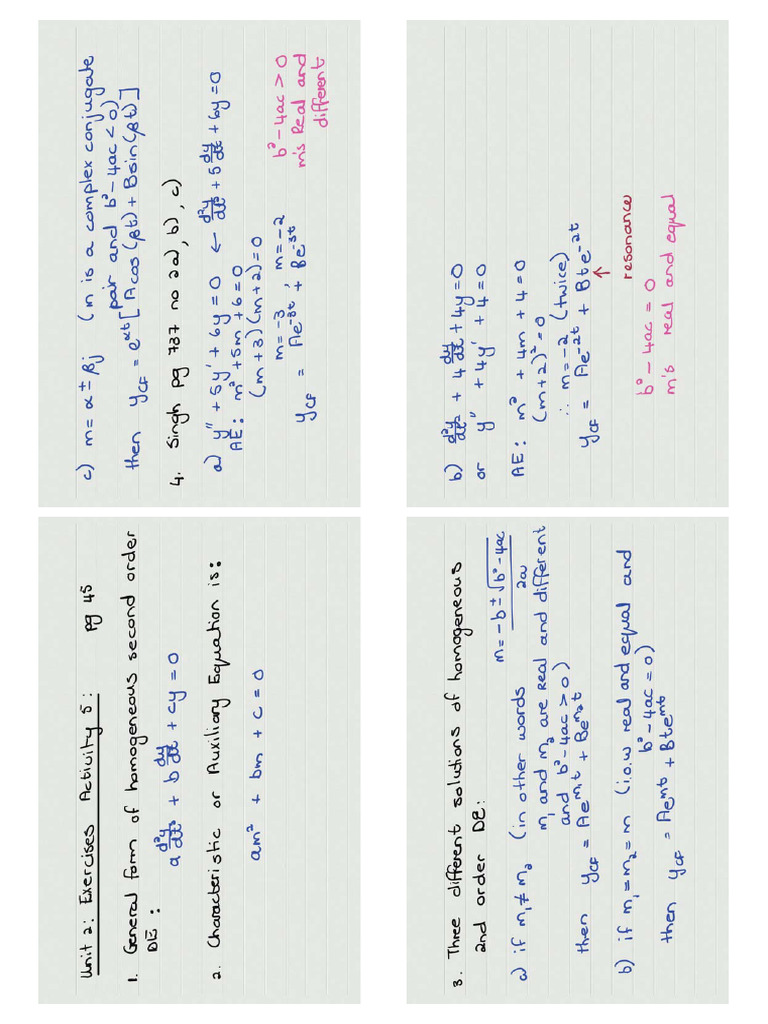 Unit 2: Exercises Activity 5: pg 45
1. General form of homogeneous second order
DE:
a d²y/dt² + b dy/dt + cy = 0
2. Characteristic or Auxiliary Equation is:
am² + bm + c = 0
3. Three different solutions of homogeneous
2nd order DE:
m = -b ± √b² - 4ac / 2a
a) if m₁ ≠ m₂ (in other words
m₁ and m₂ are Real and different
and b² - 4ac > 0)
then y_CF = Ae^m₁t + Be^m₂t
b) if m₁ = m₂ = m (i.o.w real and equal and
b² - 4ac = 0)
then y_CF = Ae^mt + Bte^mt
c) m = α ± βj (m is a complex conjugate
pair and b² - 4ac < 0)
then y_CF = e^αt [Acos(βt) + Bsin(βt)]
4. Singh pg 737 no 2a), b), c)
a) y'' + 5y' + 6y = 0 ← d²y/dt² + 5 dy/dt + 6y = 0
AE: m² + 5m + 6 = 0
(m + 3)(m + 2) = 0
m = -3 ; m = -2
y_CF = Ae^-3t + Be^-3t
b² - 4ac > 0
m's Real and
different
b) d²y/dt² + 4 dy/dt + 4y = 0
or y'' + 4y' + 4 = 0
AE: m² + 4m + 4 = 0
(m + 2)² = 0
∴ m = -2 (twice)
y_CF = Ae^-2t + Bte^-2t
↑
resonance
b² - 4ac = 0
m's real and equal